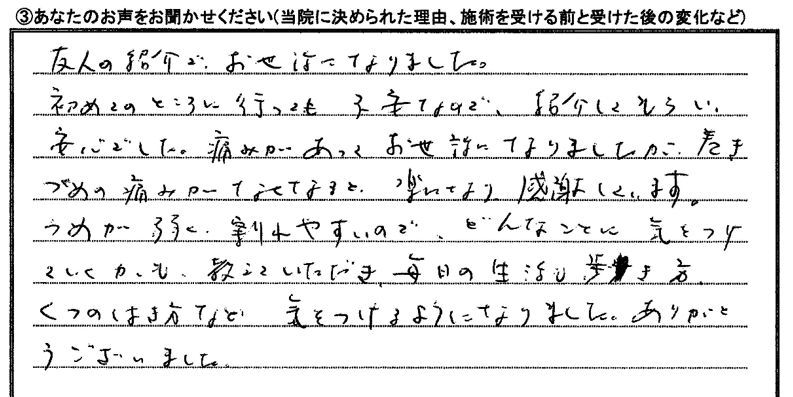 ③あなたのお声をお聞かせください(当院に決められた理由、施術を受ける前と受けた後の変化など)
友人の紹介で、お世話になりました。
初めてのところに行っても不安なので、紹介してもらい、
安心でした。痛みがあってお世話になりましたが、巻き
づめの痛みがなくなると、楽になり、感謝しています。
つめが弱く、割れやすいので、どんなことに気をつけ
ていくかも、教えていただき、毎日の生活も歩き方、
くつのはき方など気をつけるようになりました。ありがと
うございました。